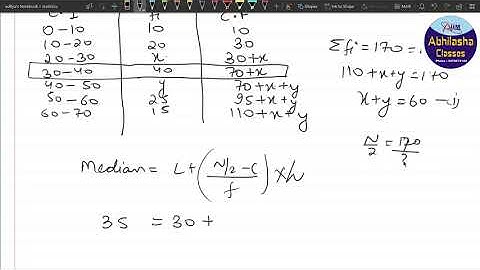 C.I fi C.F
0-10 10 10
10-20 20 30
20-30 x 30+x
30-40 40 70+x
40-50 y 70+x+y
50-60 25 95+x+y
60-70 15 110+x+y
Σfi = 170 =
110+x+y = 170
x+y = 60 - i)
N/2 = 170/2
Median = L+(N/2-C/f)×h
35 = 30+
Abhilasha
Classes